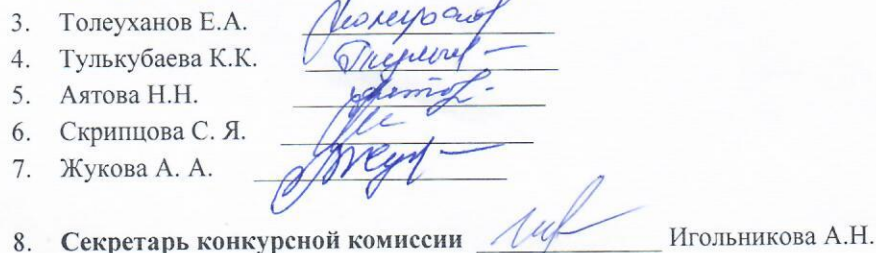 3. Толеуханов Е.А.
4. Тулькубаева К.К.
5. Аятова Н.Н.
6. Скрипцова С. Я.
7. Жукова А. А.
8. Секретарь конкурсной комиссии Игольникова А.Н.